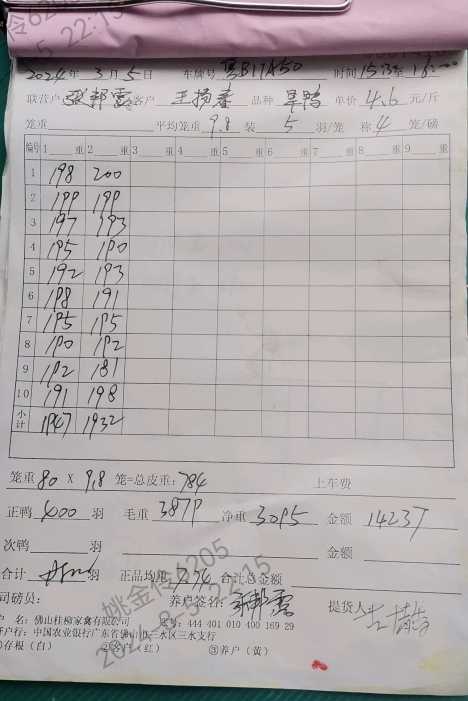 2024年 3月 5日 车牌号 时间 15:13至16:00
联营户 张邦霞 客户 品种 旱鸭 单价 4.6 元/斤
笼重 平均笼重 9.8 装 5 羽/笼 称 4 笼/磅
编号 1 重 2 重 3 重 4 重 5 重 6 重 7 重 8 重 9 重
1 198 200
2 199 199
3 197 193
4 195 190
5 192 193
6 198 191
7 195 195
8 190 192
9 192 181
10 191 198
小计 1947 1932
笼重 80 X 9.8 笼=总皮重: 784 上车费
正鸭 400 羽 毛重 3879 净重 3095 金额 14237
次鸭 羽 金额
合计 羽 正品均重 7.74 合计总金额
司磅员: 养户签名: 张邦霞 提货人
户 名: 佛山桂柳家禽有限公司 账号: 444 401 010 400 169 29
开户行: 中国农业银行广东省佛山市三水区三水支行
①存根(白) ②客户(红) ③养户(黄)
姚金传6205
2024-3-5 22:15